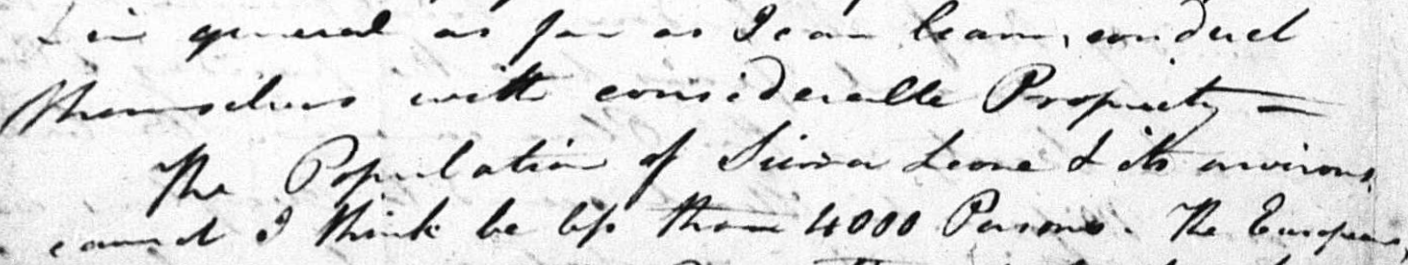 & in general as far as I can learn, conduct
themselves with considerable Propriety =
The Population of Sierra Leone & its environs,
cannot I think be less than 4000 Persons. The Europeans,